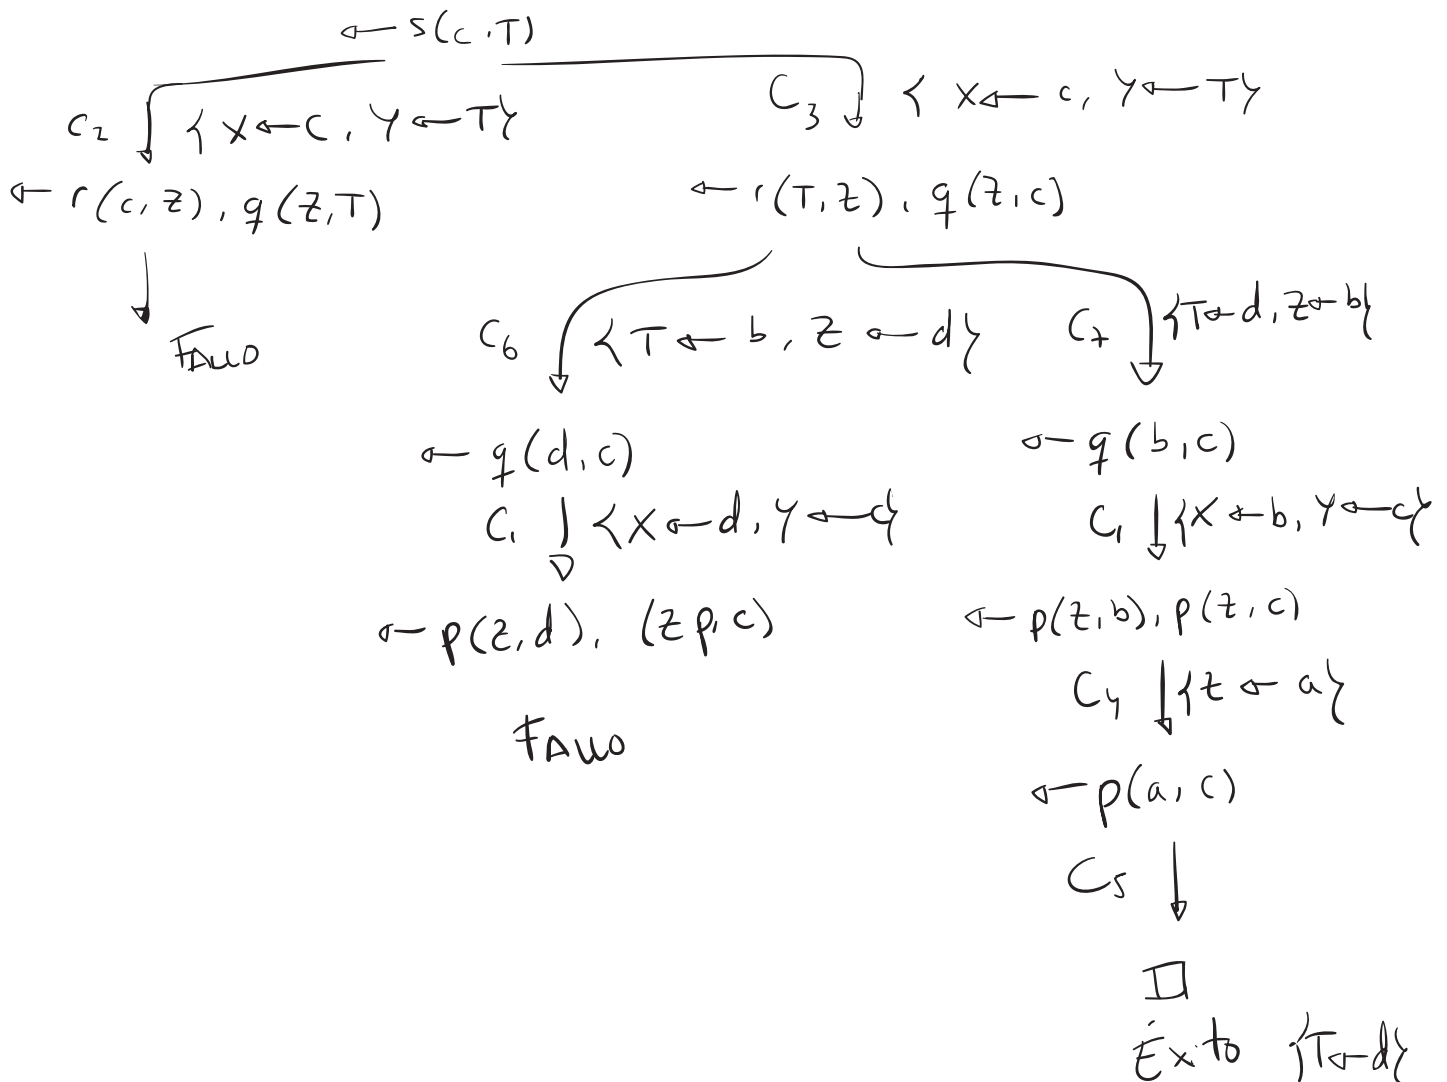 ← s(c,T)
C2 { X←C, Y←T}
C3 { X← c, Y← T}
← r(c,Z), q(Z,T)
← r(T,Z), q(Z,c)
FALLO
C6 {T← b, Z ← d}
C7 {T←d, Z←b}
← q(d,c)
← q(b,c)
C1 {X←d, Y←c}
C1 {X←b, Y←c}
← p(Z,d), (Z p, c)
← p(Z,b), p(Z,c)
C4 {Z ← a}
FALLO
← p(a,c)
C5
□
Éxito {T←d}